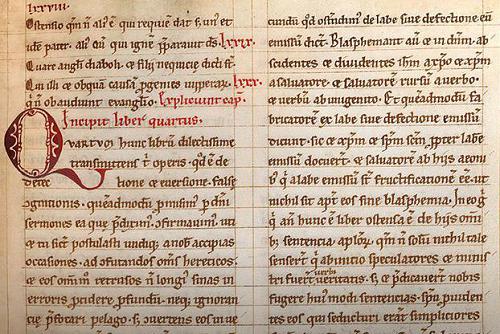 lxxviii.
Ostensio qm̄ n̄ aliꝰ ē qui requiē dat, s; un' et
idē pater. aliꝰ aū qui ignē p̄paravit ds̄. lxxix.
Quare angli diaboli. ⁊ filij nequicię dicti st̄.
Qui illi ⁊ ob quam causā p̄genies uiperarū. lxxx.
q̄ n̄ obaudiunt evanglio. Expliciunt cap̄.
Incipit liber quartus.
Quartvm hunc librū dilectissime
transmittens t' operis. qd' ē de
detectione ⁊ eversione. false
cognitionis. quēadmodū p̄misim' p dn̄i
sermones ea quę p̄dixim' 9firmavim'. uti
⁊ tu sicut postulasti undiq; a nob' accipias
occasiones. ad 9futandos om̄s hereticos.
⁊ eos om̄i m̄ retrusos n̄ longi' sinas in
erroris p̄cidere p̄fundū. neq; ignoran
cię p̄focari pelago. s; uertens eos in ue
cundū qd' ostendim' de labe siue defectione eū
emissū dic̄t. Blasphemant aū ⁊ in dn̄m. ab
scidentes ⁊ dividentes ihm̄ a xp̄o ⁊ xp̄m
a salvatore. ⁊ salvatorē rursū a verbo.
⁊ verbū ab unigenito. Et quēadmodū fa
bricatorē ex labe siue defectione emissū
dicunt. sic ⁊ xp̄m ⁊ sp̄m sc̄m. ppter labē
emissū docuer̄t. ⁊ salvatorē ab hijs aeoni
b; q' a labe emissi st̄ fructificationē ēē. ut
nichil sit apt' eos sine blasphemia. In eo g̊
q' an̄ hunc ē liber ostensa ē de hijs om̄i
b; sentencia ap̄lorū. qm̄ n̄ solū nichil tale
senser̄t q' ab initio speculatores ⁊ minis
tri fuer̄t verbi veritatis. s; ⁊ p̄dicaver̄t nobis
fugere hui'modi sentencias. sp̄u p̄uiden
tes eos qui seducturi erāt simpliciores